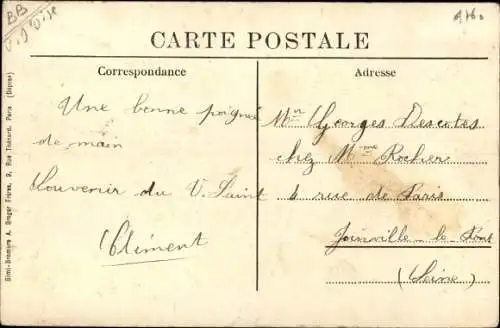 BB
V. d'Oise
CARTE POSTALE
Correspondance
Une bonne poignée
de main
Souvenir du V. Saint
Clément
Adresse
Mr Georges Descotes
chez Mme Rocher
6 rue de Paris
Joinville-le-Pont
(Seine)
Simi-Bromure A. Breger Frères, 9, Rue Thénard, Paris (Dépose)